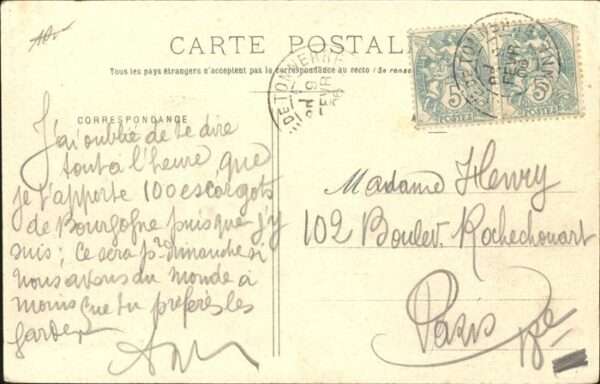 CARTE POSTALE
Tous les pays étrangers n'acceptent pas la correspondance au recto (Se rense
CORRESPONDANCE
J'ai oublié de te dire
tout à l'heure que
je t'apporte 100 escargots
de Bourgogne puisque j'y
suis; ce sera pr dimanche si
nous avons du monde à
moins que tu préfères les
garder
Madame Henry
102 Boulev. Rochechouart
Paris
5
POSTES
5
POSTES
DE TONNERRE
FEVR
DE TONNERRE
FEVR
06